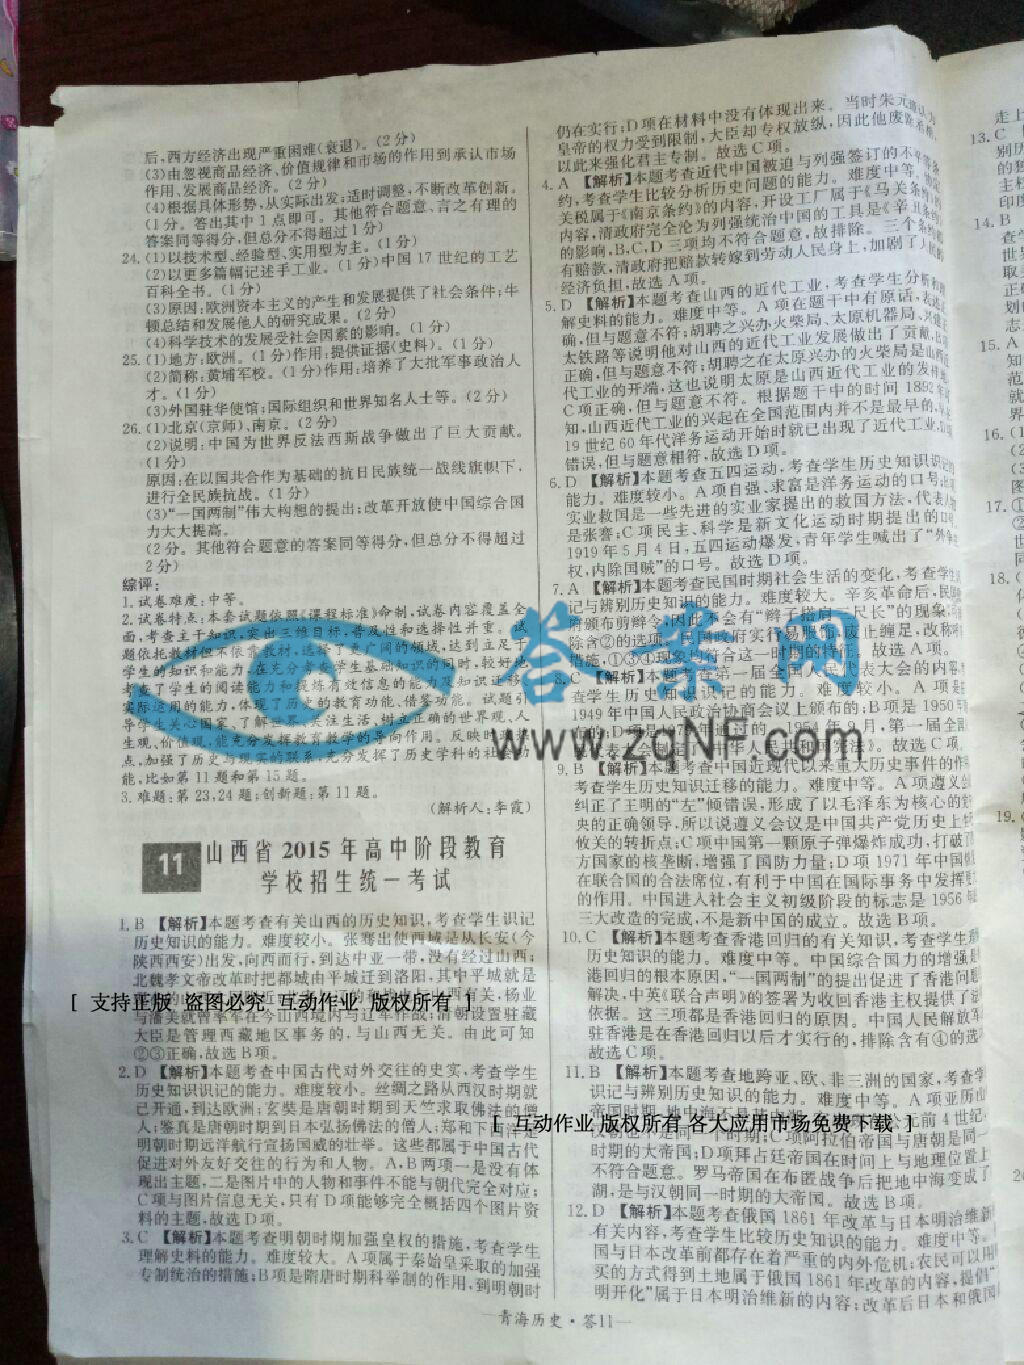 后,西方经济出现严重困难(衰退)。(2分)
(3)由忽视商品经济、价值规律和市场的作用到承认市场
作用、发展商品经济。(2分)
(4)根据具体形势,从实际出发;适时调整,不断改革创新。
(1分。答出其中1点即可。其他符合题意、言之有理的
答案同等得分,但总分不得超过1分)
24.(1)以技术型、经验型、实用型为主。(1分)
(2)以更多篇幅记述手工业。(1分)中国17世纪的工艺
百科全书。(1分)
(3)原因:欧洲资本主义的产生和发展提供了社会条件;牛
顿总结和发展他人的研究成果。(2分)
(4)科学技术的发展受社会因素的影响。(1分)
25.(1)地方:欧洲。(1分)作用:提供证据(史料)。(1分)
(2)简称:黄埔军校。(1分)作用:培养了大批军事政治人
才。(1分)
(3)外国驻华使馆;国际组织和世界知名人士等。(2分)
26.(1)北京(京师)、南京。(2分)
(2)说明:中国为世界反法西斯战争做出了巨大贡献。
(1分)
原因:在以国共合作为基础的抗日民族统一战线旗帜下,
进行全民族抗战。(1分)
(3)“一国两制”伟大构想的提出;改革开放使中国综合国
力大大提高。
(2分。其他符合题意的答案同等得分,但总分不得超过
2分)
综评:
1.试卷难度:中等。
2.试卷特点:本套试题依照《课程标准》命制,试卷内容覆盖全
面,考查主干知识,突出三维目标,普及性和选择性并重。试
题依托教材但不依靠教材,选择了更广阔的领域,达到立足于
学生的知识和能力,在充分考查学生基础知识的同时,较好地
考查了学生的阅读能力和提炼有效信息的能力及知识迁移
实际运用的能力,体现了历史的教育功能、借鉴功能。试题引
导学生关心国家、了解世界、关注生活、树立正确的世界观、人
生观、价值观,能充分发挥教育教学的导向作用。反映时
点,加强了历史与现实的联系,充分发挥了历史学科的社会功
能,比如第11题和第15题。
3.难题:第23、24题;创新题:第11题。
(解析人:李霞)
11 山西省2015年高中阶段教育
学校招生统一考试
1.B 【解析】本题考查有关山西的历史知识,考查学生识记
历史知识的能力。难度较小。张骞出使西域是从长安(今
陕西西安)出发,向西而行,到达中亚一带,没有经过山西;
北魏孝文帝改革时把都城由平城迁到洛阳,其中平城就是
[ 支持正版 盗图必究 互动作业 版权所有 ]
与潘美就曾率军在今山西境内与辽军作战;清朝设置驻藏
大臣是管理西藏地区事务的,与山西无关。由此可知
②③正确,故选B项。
2.D 【解析】本题考查中国古代对外交往的史实,考查学生
历史知识识记的能力。难度较小。丝绸之路从西汉时期就
已开通,到达欧洲;玄奘是唐朝时期到天竺求取佛法的僧
人;鉴真是唐朝时期到日本弘扬佛法的僧人;郑和下西洋是
明朝时期远洋航行宣扬国威的壮举。这些都属于中国古代
促进对外友好交往的行为和人物。A、B两项一是没有体
现出主题,二是图片中的人物和事件不能与朝代完全对应;
C项与图片信息无关,只有D项能够完全概括四个图片资
料的主题,故选D项。
3.C 【解析】本题考查明朝时期加强皇权的措施,考查学生
理解史料的能力。难度较大。A项属于秦始皇采取的加强
专制统治的措施;B项是隋唐时期科举制的作用,到明朝时
仍在实行;D项在材料中没有体现出来。当时朱元璋认为
皇帝的权力受到限制,大臣却专权放纵,因此他废除
以此来强化君主专制。故选C项。
4.A 【解析】本题考查近代中国被迫与列强签订的不平等条
约,考查学生比较分析历史问题的能力。难度中等。协定
关税属于《南京条约》的内容,开设工厂属于《马关条约》的
内容,清政府完全沦为列强统治中国的工具是《辛丑条约》
的影响,B、C、D三项均不符合题意,故排除。三个条约都
有赔款,清政府把赔款转嫁到劳动人民身上,加剧了人民的
经济负担,故选A项。
5.D 【解析】本题考查山西的近代工业,考查学生分析和理
解史料的能力。难度中等。A项在题干中有原话,表述正
确,但与题意不符;胡聘之兴办火柴局、太原机器局、兴建正
太铁路等说明他对山西的近代工业发展做出了贡献,
正确,但与题意不符;胡聘之在太原兴办的火柴局是山西近
代工业的开端,这也说明太原是山西近代工业的发祥地,
C项正确,但与题意不符。根据题干中的时间1892年可
知,山西近代工业的兴起在全国范围内并不是最早的,早在
19世纪60年代洋务运动开始时就已出现了近代工业,D项
错误,但与题意相符,故选D项。
6.D 【解析】本题考查五四运动,考查学生历史知识识记的
能力。难度较小。A项自强、求富是洋务运动的口号;B项
实业救国是一些先进的实业家提出的救国方法,代表人物
是张謇;C项民主、科学是新文化运动时期提出的口号。
1919年5月4日,五四运动爆发,青年学生喊出了“外争主
权,内除国贼”的口号。故选D项。
7.A 【解析】本题考查民国时期社会生活的变化,考查学生识
记与辨别历史知识的能力。难度较大。辛亥革命后,民国政
府颁布剪辫令,因此不会有“辫子搭肩一尺长”的现象,可排
除含②的选项。民国政府实行易服饰、废止缠足,改称呼等
措施,①③④现象均符合这一时期的特征。故选A项。
8.C 【解析】本题考查第一届全国人民代表大会的内容,考
查学生历史知识识记的能力。难度中等。A项是
1949年中国人民政治协商会议上颁布的;B项是1950年颁
布的;D项是1978年通过的。1954年9月,第一届全国人
民代表大会制定了《中华人民共和国宪法》。故选C项。
9.B 【解析】本题考查中国近现代以来重大历史事件的作用,
考查学生历史知识迁移的能力。难度中等。A项遵义会议
纠正了王明的“左”倾错误,形成了以毛泽东为核心的党中
央的正确领导,所以说遵义会议是中国共产党历史上生死
攸关的转折点;C项中国第一颗原子弹爆炸成功,打破了西
方国家的核垄断,增强了国防力量;D项1971年中国恢复
在联合国的合法席位,有利于中国在国际事务中发挥更大
的作用。中国进入社会主义初级阶段的标志是1956年底
三大改造的完成,不是新中国的成立。故选B项。
10.C 【解析】本题考查香港回归的有关知识,考查学生理解
历史知识的能力。难度中等。中国综合国力的增强是香
港回归的根本原因,“一国两制”的提出促进了香港问题的
解决,中英《联合声明》的签署为收回香港主权提供了法律
依据。这三项都是香港回归的原因。中国人民解放军进
驻香港是在香港回归以后才实行的,排除含有④的选项,
故选C项。
11.B 【解析】本题考查地跨亚、欧、非三洲的国家,考查学生
识记与辨别历史知识的能力。难度中等。A项亚历山大
[ 互动作业 版权所有 各大应用市场免费下载 ]
纪,与朝也不是同一个时期;C项阿拉伯帝国与唐朝是同一
时期的大帝国;D项拜占廷帝国在时间上与地理位置上
不符合题意。罗马帝国在布匿战争后把地中海变成了内
湖,是与汉朝同一时期的大帝国。故选B项。
12.D 【解析】本题考查俄国1861年改革与日本明治维新的
有关内容,考查学生比较历史知识的能力。难度中等。俄
国与日本改革前都存在着严重的内外危机;农民可以用购
买的方式得到土地属于俄国1861年改革的内容,提倡“文
明开化”属于日本明治维新的内容;改革后日本和俄国
—青海历史·答11—
走上
13.C
别历
的独
主权
印度
14.B
查学
世界
取得
正确
15.A
知
就
16.(1
(2
17.①
18.(
19.(
答案网
www.zqNF.com